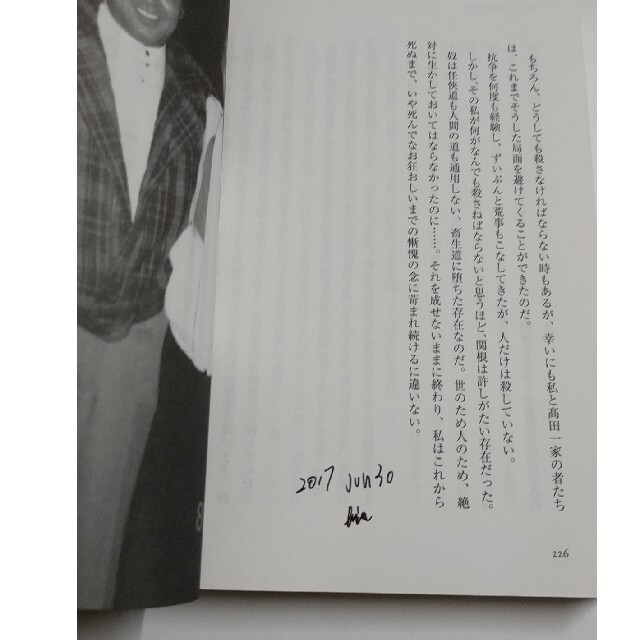 もちろん、どうしても殺さなければならない時もあるが、幸いにも私と髙田一家の者たち
は、これまでそうした局面を避けてくることができたのだ。
抗争を何度も経験し、ずいぶんと荒事もこなしてきたが、人だけは殺していない。
しかし、その私が何がなんでも殺さねばならないと思うほど、関根は許しがたい存在だった。
奴は任俠道も人間の道も通用しない、畜生道に堕ちた存在なのだ。世のため人のため、絶
対に生かしておいてはならなかったのに……。それを成せないままに終わり、私はこれから
死ぬまで、いや死んでなお狂おしいまでの慚愧の念に苛まれ続けるに違いない。
2017 Jun 30
226